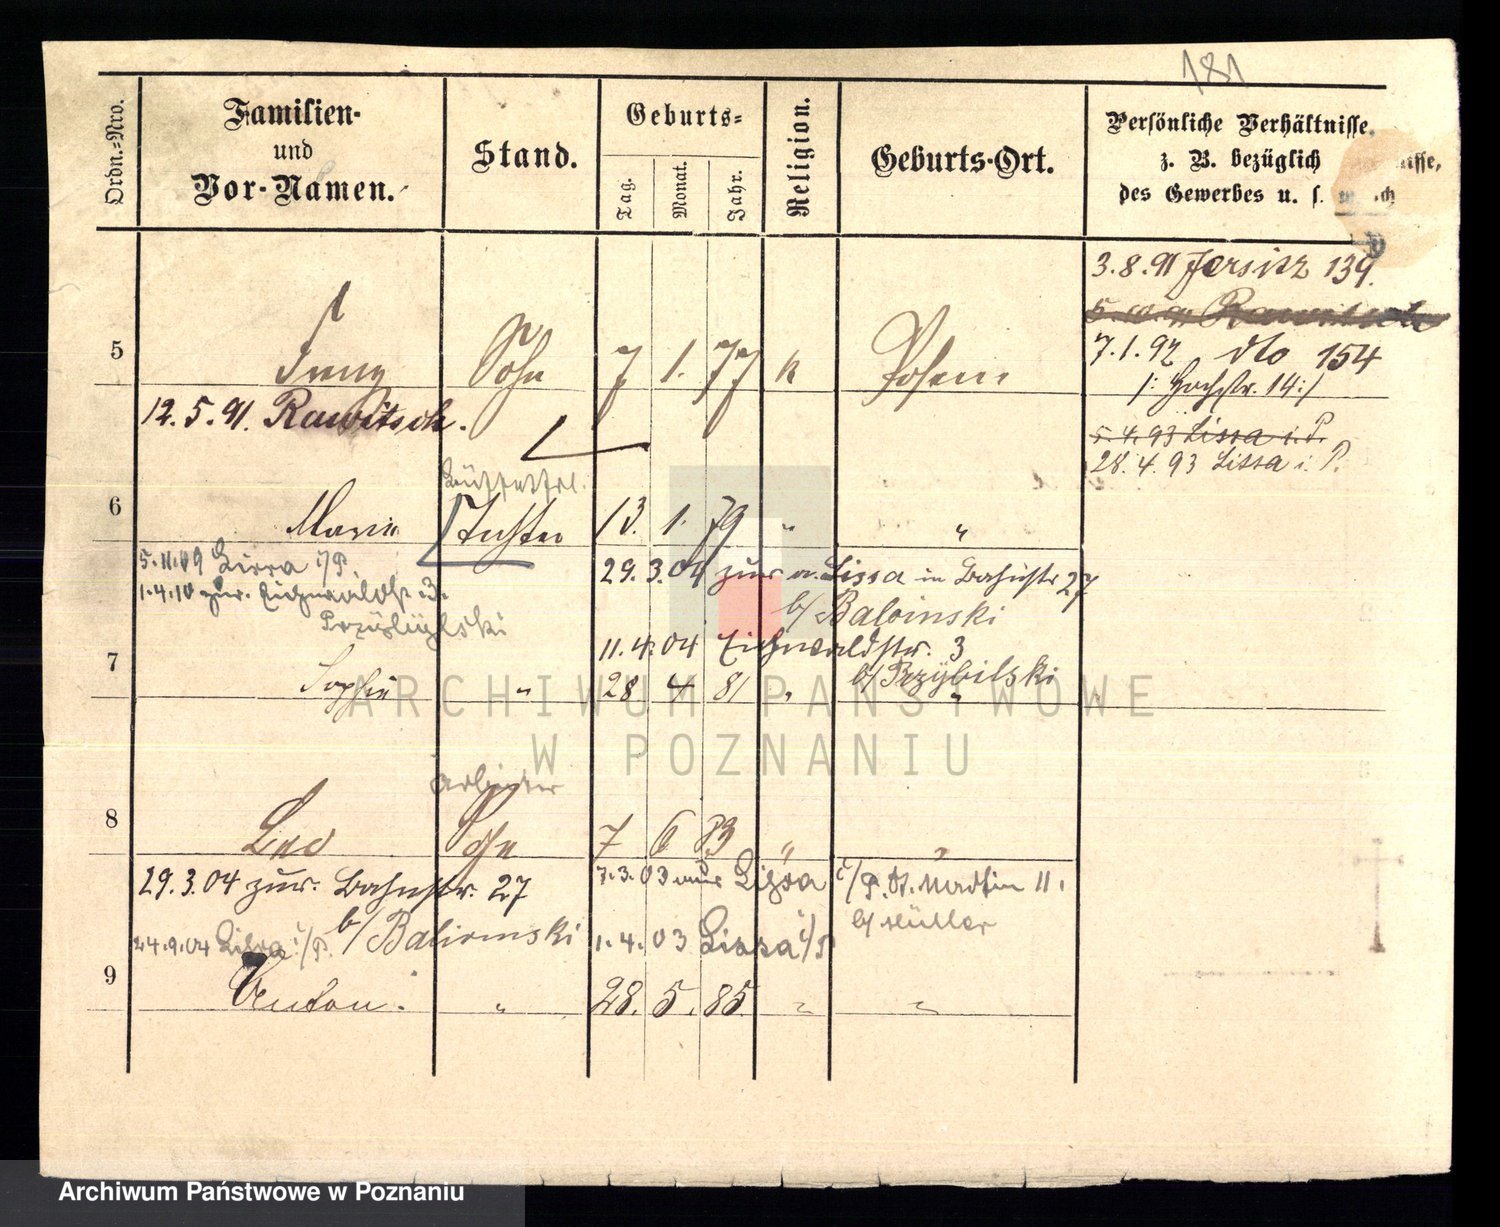 181
Ordn.-Nro.
Familien-
und
Vor-Namen.
Stand.
Geburts-
Tag.
Monat.
Jahr.
Religion.
Geburts-Ort.
Persönliche Verhältnisse,
z. B. bezüglich
des Gewerbes u. s.
3.8.91 Jersitz 139.
5. 10. 91 Rawitsch
7.1.92 dto 154
/: Hochstr. 14:/
5 Franz Sohn 7 1. 77 k Posen
12.5.91. Rawitsch.
5.4.93 Lissa i. P.
28.4.93 Lissa i. P.
6 Marie Tochter 13. 1. 79 " "
5.11.09 Lissa i/P.
1.4.10 zur. Eichwaldstr. 3.
29.3.04 zur v. Lissa in Bahnstr 27
b/ Balvinski
11.4.04 Eichwaldstr. 3
b/ Przybilski
7 Sophie " 28 4 81 " "
Arbeiter
8 Leo Sohn 7 6 83 " "
29.3.04 zur. Bahnstr. 27
b/ Balvinski
7.3.03 aus Lissa i/P. St. Martin 11.
b/ Müller
24.9.04 Lissa i/P.
1.4.03 Lissa i/P
9 Anton. " 28. 5. 85 " "
ARCHIWUM PAŃSTWOWE
W POZNANIU
Archiwum Państwowe w Poznaniu